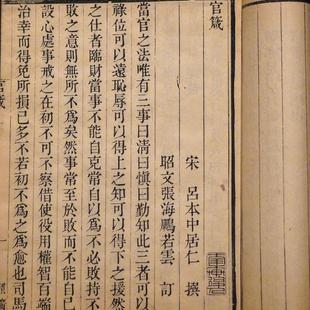 官箴
宋 呂本中居仁 撰
昭文張海鵬若雲 訂
當官之法唯有三事曰清曰慎曰勤知此三者可以
祿位可以遠恥辱可以得上之知可以得下之援然
之仕者臨財當事不能自克常自以爲不必敗持不
敗之意則無所不爲矣然事常至於敗而不能自
設心處事戒之在初不可不察借使役用權智百端
治幸而得免所損已多不若初不爲之爲愈也司馬
官箴 一